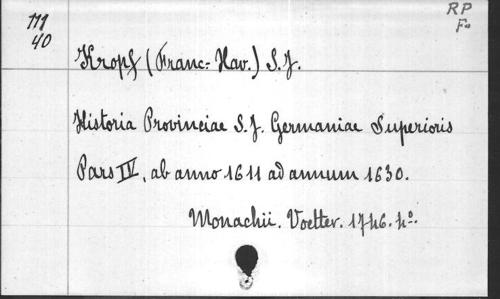 RP
Fo
111
40
Kropf (Franc: Xav.) S.J.
Historia Provinciae S.J. Germaniae Superioris
Pars IV, ab anno 1611 ad annum 1630.
Monachii. Voetter. 1746. 4o.